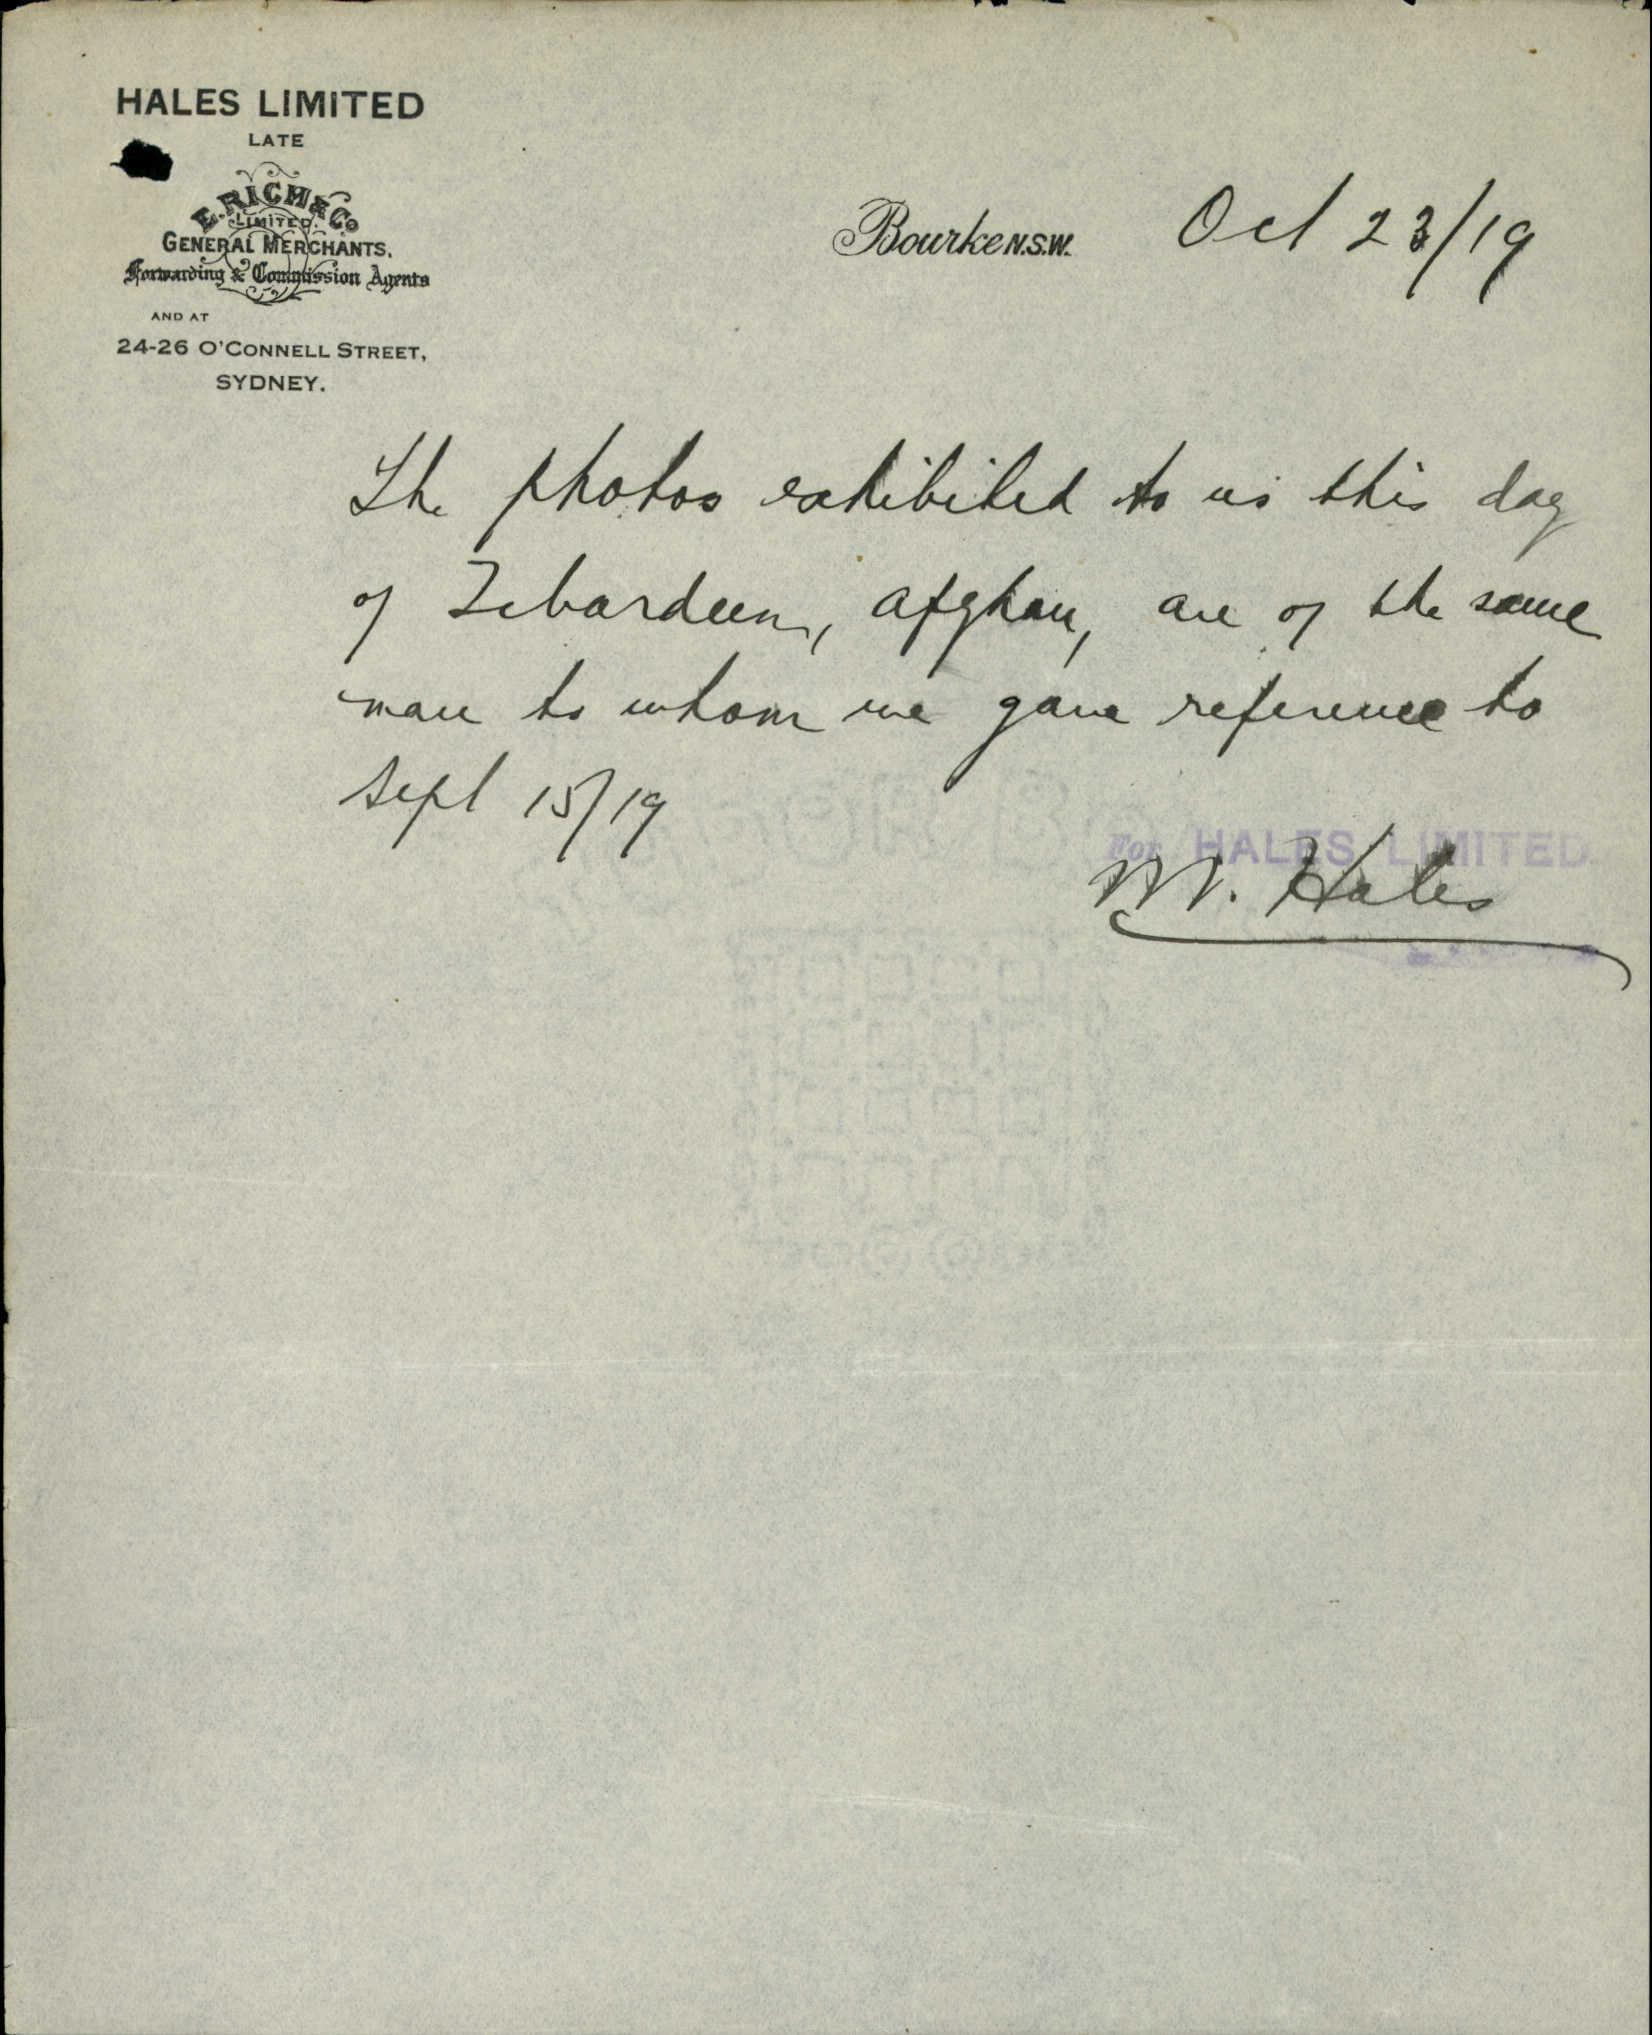 HALES LIMITED
LATE
E. RICH & Co
LIMITED.
GENERAL MERCHANTS.
Forwarding & Commission Agents
AND AT
24-26 O'CONNELL STREET,
SYDNEY.
Bourke N.S.W. Oct 23/19
The photos exhibited to us this day
of Zebardeen, Afghan, are of the same
man to whom we gave reference to
Sept 15/19
For HALES LIMITED
M. Hales